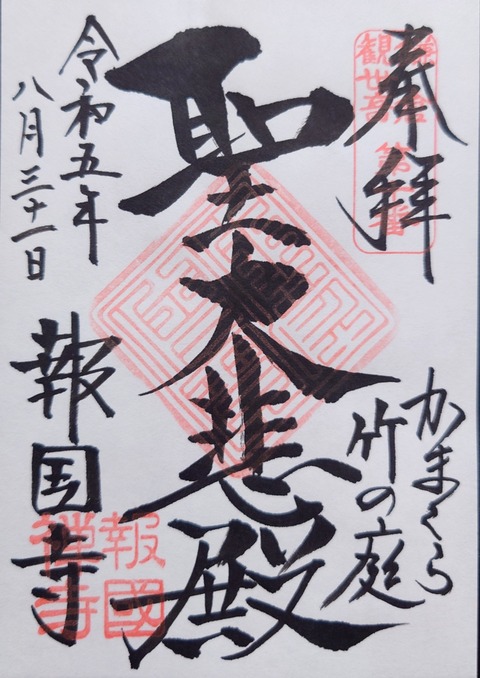 奉拝
かまくら
竹の庭
聖大悲殿
令和五年
八月三十一日
報国寺
報國
禅寺